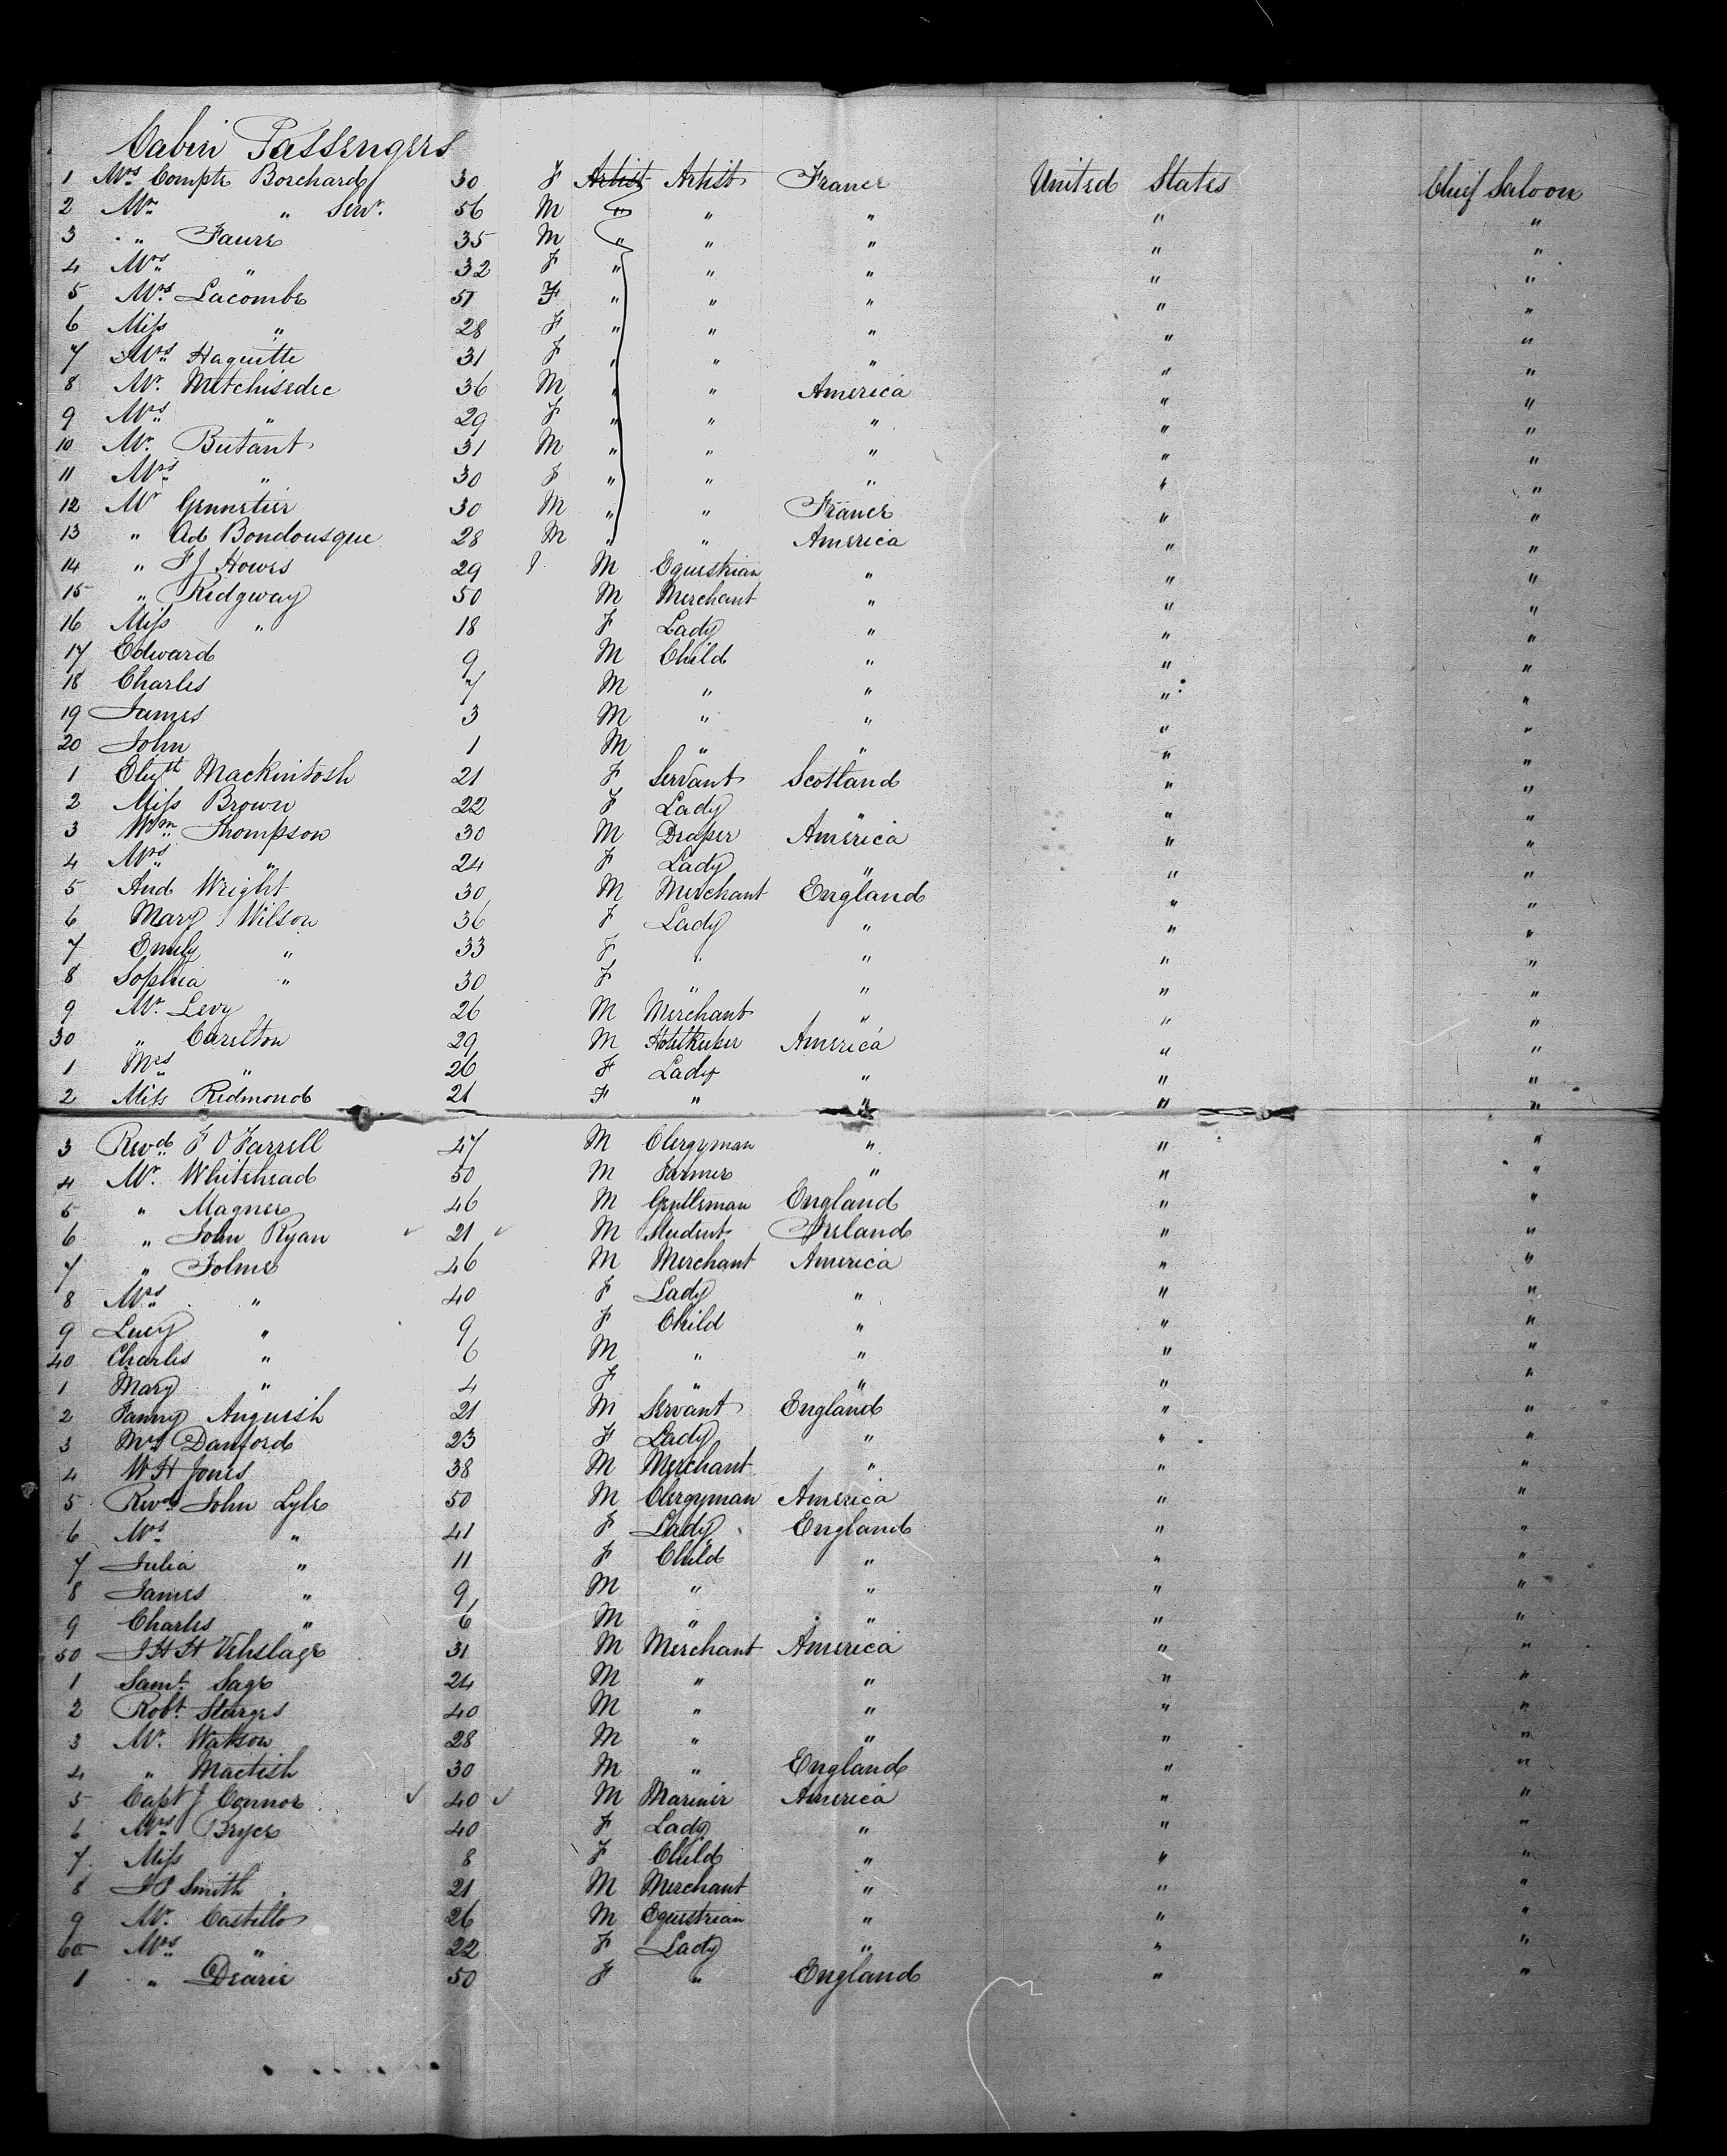 Cabin Passengers
1 Mrs Compte Borchard 30 F Artist Artist France United States Chief Saloon
2 Mr " Senr. 56 M " " " " "
3 " Faure 35 M " " " " "
4 Mrs " 32 F " " " " "
5 Mrs Lacombe 51 F " " " " "
6 Miss " 28 F " " " " "
7 Mrs Haquette 31 F " " " " "
8 Mr. Metchisedec 36 M " " America " "
9 Mrs " 29 F " " " " "
10 Mr. Butant 31 M " " " " "
11 Mrs " 30 F " " " " "
12 Mr Gennetier 30 M " " France " "
13 " Ad Bondousque 28 M " " America " "
14 " F J Howes 29 M Equestrian " " "
15 " Ridgway 50 M Merchant " " "
16 Miss " 18 F Lady " " "
17 Edward 9 M Child " " "
18 Charles 7 M " " " "
19 James 3 M " " " "
20 John 1 M " " " "
1 Elizth Mackintosh 21 F Servant Scotland " "
2 Miss Brown 22 F Lady " " "
3 Wm Thompson 30 M Draper America " "
4 Mrs " 24 F Lady " " "
5 And Wright 30 M Merchant England " "
6 Mary J Wilson 36 F Lady " " "
7 Emily " 33 F " " " "
8 Sophia " 30 F " " " "
9 Mr. Levy 26 M Merchant " " "
30 " Carelton 29 M Hotelkeeper America " "
1 Mrs " 26 F Lady " " "
2 Miss Redmond 21 F " " " "
3 Revd. F O'Farrell 47 M Clergyman " " "
4 Mr. Whitehead 50 M Farmer " " "
5 " Magner 46 M Gentleman England " "
6 " John Ryan 21 M Student Ireland " "
7 " Tolme 46 M Merchant America " "
8 Mrs " 40 F Lady " " "
9 Lucy " 9 F Child " " "
40 Charles " 6 M " " " "
1 Mary " 4 F " " " "
2 Fanny Anguish 21 M Servant England " "
3 Mrs Danford 23 F Lady " " "
4 W H Jones 38 M Merchant " " "
5 Revd. John Lyle 50 M Clergyman America " "
6 Mrs " 41 F Lady England " "
7 Julia " 11 F Child " " "
8 James " 9 M " " " "
9 Charles " 6 M " " " "
50 J H H Vehslage 31 M Merchant America " "
1 Saml. Sage 24 M " " " "
2 Robt. Sturges 40 M " " " "
3 Mr. Watson 28 M " " " "
4 " Mactish 30 M " England " "
5 Capt J Connor 40 M Mariner America " "
6 Mrs Bryce 40 F Lady " " "
7 Miss 8 F Child " " "
8 J P Smith 21 M Merchant " " "
9 Mr. Castello 26 M Equestrian " " "
60 Mrs " 22 F Lady " " "
1 " Dearie 50 F " England " "